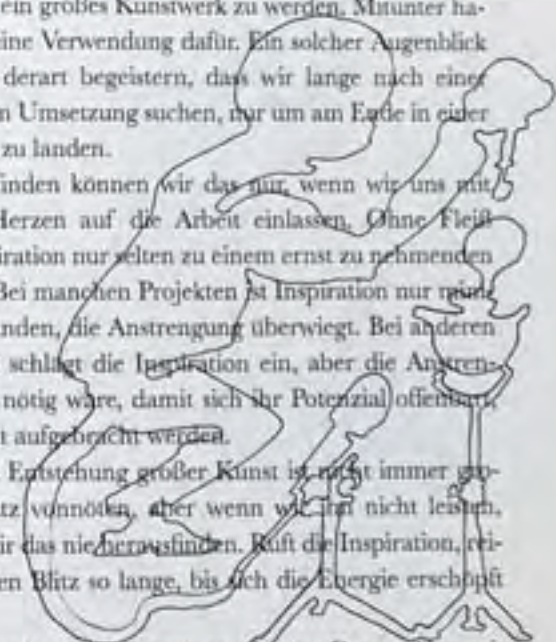 ein großes Kunstwerk zu werden. Mitunter ha-
eine Verwendung dafür. Ein solcher Augenblick
derart begeistern, dass wir lange nach einer
n Umsetzung suchen, nur um am Ende in einer
zu landen.
finden können wir das nur, wenn wir uns mit
Herzen auf die Arbeit einlassen. Ohne Fleiß
iration nur selten zu einem ernst zu nehmenden
Bei manchen Projekten ist Inspiration nur
nden, die Anstrengung überwiegt. Bei anderen
schlägt die Inspiration ein, aber die Anstren-
nötig wäre, damit sich ihr Potenzial offenbart,
t aufgebracht werden.
Entstehung großer Kunst ist nicht immer gro-
tz vonnöten, aber wenn wir ihn nicht leisten,
ir das nie herausfinden. Ruft die Inspiration, rei-
en Blitz so lange, bis sich die Energie erschöpft